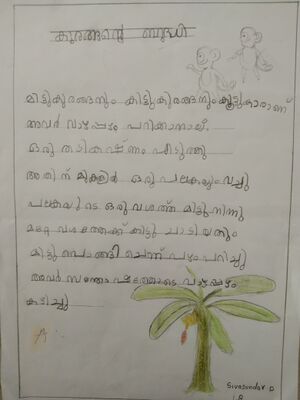 കുരങ്ങന്റെ ബുദ്ധി
മിട്ടുകുരങ്ങനും കിട്ടുകുരങ്ങനും കൂട്ടുകാരാണ്
അവർ വാഴപ്പഴം പറിക്കാനായ്
ഒരു തടികഷ്ണം പിടുത്തു
അതിന് മുകളിൽ ഒരു പലകയും വച്ചു
പലകയുടെ ഒരു വശത്ത് മിട്ടു നിന്നു
മറ്റേ വശത്തേക്ക് കിട്ടു ചാടിയതും
മിട്ടു പൊങ്ങി ചെന്ന് പഴം പറിച്ചു
അവർ സന്തോഷത്തോടെ വാഴപ്പഴം
കഴിച്ചു
A
Sivasundar D
1.B